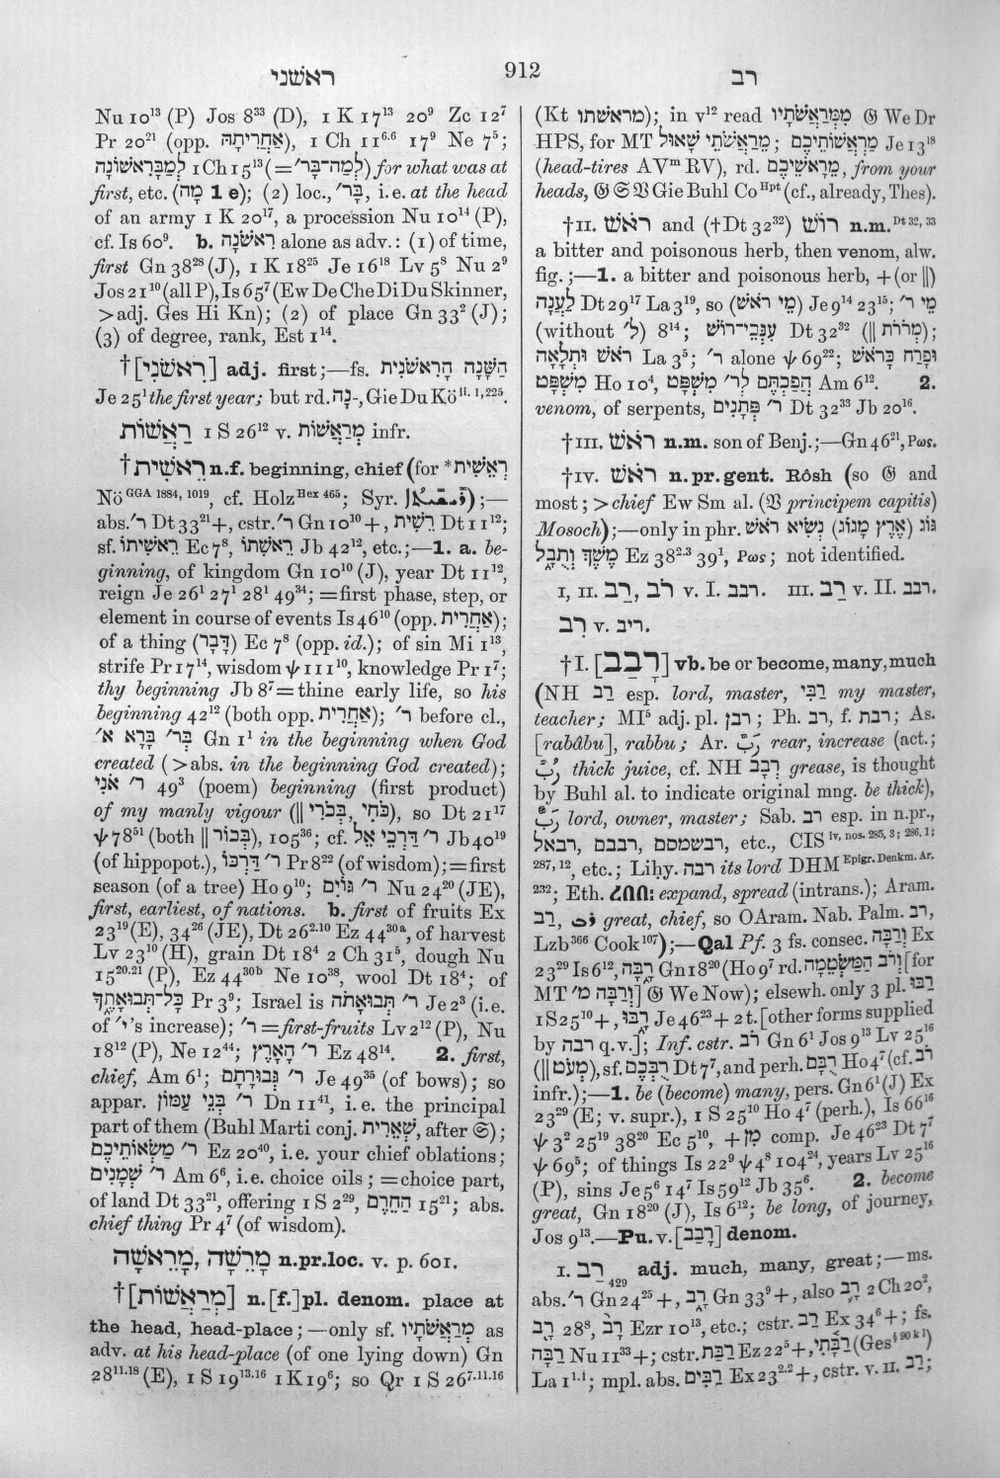 ראשני
912
רב
Nu 10¹³ (P) Jos 8³³ (D), 1 K 17¹³ 20⁹ Zc 12⁷
Pr 20²¹ (opp. אַחֲרִיתָהּ), 1 Ch 11⁶·⁶ 17⁹ Ne 7⁵;
לְמַבָּרִאשׁוֹנָה 1 Ch 15¹³ (= לְמַה־בָּר׳) for what was at
first, etc. (מָה 1 e); (2) loc., בָּר׳, i.e. at the head
of an army 1 K 20¹⁷, a procession Nu 10¹⁴ (P),
cf. Is 60⁹. b. רִאשֹׁנָה alone as adv.: (1) of time,
first Gn 38²⁸ (J), 1 K 18²⁵ Je 16¹⁸ Lv 5⁸ Nu 2⁹
Jos 21¹⁰ (all P), Is 65⁷ (Ew De Che Di Du Skinner,
>adj. Ges Hi Kn); (2) of place Gn 33² (J);
(3) of degree, rank, Est 1¹⁴.
†[רִאשֹׁנִי] adj. first;—fs. הַשָּׁנָה הָרִאשֹׁנִית
Je 25¹ the first year; but rd. נָה-, Gie Du Kö ii. 1, 225.
רַאֲשׁוֹת 1 S 26¹² v. מְרַאֲשׁוֹת infr.
†רֵאשִׁית n.f. beginning, chief (for *רֵאְשִׁית
Nö GGA 1884, 1019, cf. Holz Hex 465; Syr. );—
abs. ר׳ Dt 33²¹+, cstr. ר׳ Gn 10¹⁰+, רֵשִׁית Dt 11¹²;
sf. רֵאשִׁיתוֹ Ec 7⁸, רֵאשִׁתוֹ Jb 42¹², etc.;—1. a. be-
ginning, of kingdom Gn 10¹⁰ (J), year Dt 11¹²,
reign Je 26¹ 27¹ 28¹ 49³⁴; =first phase, step, or
element in course of events Is 46¹⁰ (opp. אַחֲרִית);
of a thing (דָּבָר) Ec 7⁸ (opp. id.); of sin Mi 1¹³,
strife Pr 17¹⁴, wisdom ψ 111¹⁰, knowledge Pr 1⁷;
thy beginning Jb 8⁷ = thine early life, so his
beginning 42¹² (both opp. אַחֲרִית); ר׳ before cl.,
בְּר׳ בָּרָא א׳ Gn 1¹ in the beginning when God
created (>abs. in the beginning God created);
ר׳ אֹנִי 49³ (poem) beginning (first product)
of my manly vigour (|| כֹּחִי, בְּכֹרִי), so Dt 21¹⁷
ψ 78⁵¹ (both || בְּכוֹר), 105³⁶; cf. ר׳ דַּרְכֵי אֵל Jb 40¹⁹
(of hippopot.), ר׳ דַּרְכּוֹ Pr 8²² (of wisdom); =first
season (of a tree) Ho 9¹⁰; ר׳ גּוֹיִם Nu 24²⁰ (JE),
first, earliest, of nations. b. first of fruits Ex
23¹⁹ (E), 34²⁶ (JE), Dt 26²·¹⁰ Ez 44³⁰ᵃ, of harvest
Lv 23¹⁰ (H), grain Dt 18⁴ 2 Ch 31⁵, dough Nu
15²⁰·²¹ (P), Ez 44³⁰ᵇ Ne 10³⁸, wool Dt 18⁴; of
כָּל־תְּבוּאָתֶךָ Pr 3⁹; Israel is ר׳ תְּבוּאָתֹה Je 2³ (i.e.
of י״׳s increase); ר׳ =first-fruits Lv 2¹² (P), Nu
18¹² (P), Ne 12⁴⁴; ר׳ הָאָרֶץ Ez 48¹⁴. 2. first,
chief, Am 6¹; ר׳ גְּבוּרָתָם Je 49³⁵ (of bows); so
appar. ר׳ בְּנֵי עַמּוֹן Dn 11⁴¹, i.e. the principal
part of them (Buhl Marti conj. שְׁאֵרִית, after 𝔖);
ר׳ מַשְׂאוֹתֵיכֶם Ez 20⁴⁰, i.e. your chief oblations;
ר׳ שְׁמָנִים Am 6⁶, i.e. choice oils; =choice part,
of land Dt 33²¹, offering 1 S 2²⁹, הַחֵרֶם 15²¹; abs.
chief thing Pr 4⁷ (of wisdom).
מָרֵשָׁה, מָרֵאשָׁה n.pr.loc. v. p. 601.
†[מְרַאֲשׁוֹת] n.[f.]pl. denom. place at
the head, head-place;—only sf. מְרַאֲשֹׁתָיו as
adv. at his head-place (of one lying down) Gn
28¹¹·¹⁸ (E), 1 S 19¹³·¹⁶ 1 K 19⁶; so Qr 1 S 26⁷·¹¹·¹⁶
(Kt מראשתו); in v¹² read מִמְּרַאֲשֹׁתָיו 𝔊 We Dr
HPS, for MT מֵרַאֲשֹׁתֵי שָׁאוּל; מַרְאֲשׁוֹתֵיכֶם Je 13¹⁸
(head-tires AVᵐ RV), rd. מֵרָאשֵׁיכֶם, from your
heads, 𝔊 𝔖 𝔙 Gie Buhl Co Hpt (cf., already, Thes).
†II. רֹאשׁ and (†Dt 32³²) רוֹשׁ n.m. Dt 32, 33
a bitter and poisonous herb, then venom, alw.
fig.;—1. a bitter and poisonous herb, + (or ||)
לַעֲנָה Dt 29¹⁷ La 3¹⁹, so (מֵי רֹאשׁ) Je 9¹⁴ 23¹⁵; מֵי ר׳
(without ל׳) 8¹⁴; עִנְּבֵי־רוֹשׁ Dt 32³² (|| מְרֹרֹת);
רֹאשׁ וּתְלָאָה La 3⁵; ר׳ alone ψ 69²²; וּפָרַח כָּרֹאשׁ
מִשְׁפָּט Ho 10⁴, הֲפַכְתֶּם לְר׳ מִשְׁפָּט Am 6¹². 2.
venom, of serpents, ר׳ פְּתָנִים Dt 32³³ Jb 20¹⁶.
†III. רֹאשׁ n.m. son of Benj.;—Gn 46²¹, Ρως.
†IV. רֹאשׁ n.pr.gent. Rôsh (so 𝔊 and
most; >chief Ew Sm al. (𝔙 principem capitis)
Mosoch);—only in phr. גּוֹג (אֶרֶץ מָגוֹג) נְשִׂיא רֹאשׁ
מֶשֶׁךְ וְתֻבָל Ez 38²·³ 39¹, Ρως; not identified.
I, II. רַב, רֹב v. I. רבב. III. רַב v. II. רבב.
רִב v. ריב.
†I. [רָבַב] vb. be or become, many, much
(NH רַב esp. lord, master, רַבִּי my master,
teacher; MI⁵ adj. pl. רבן; Ph. רב, f. רבת; As.
[rabâbu], rabbu; Ar. رَبَّ rear, increase (act.;
رُبّ thick juice, cf. NH רְבָב grease, is thought
by Buhl al. to indicate original mng. be thick),
رَبّ lord, owner, master; Sab. רב esp. in n.pr.,
רבאל, רבבם, רבשמסם, etc., CIS iv, nos. 285, 3; 286, 1;
287, 12, etc.; Liḥy. רבה its lord DHM Epigr. Denkm. Ar.
232; Eth. ረበበ: expand, spread (intrans.); Aram.
רַב, great, chief, so OAram. Nab. Palm. רב,
Lzb³⁶⁶ Cook¹⁰⁷);—Qal Pf. 3 fs. consec. וְרַבָּה Ex
23²⁹ Is 6¹², רָבָּה Gn 18²⁰ (Ho 9⁷ rd. וְרֹב הַמַּשְׂטֵמָה [for
MT וְרַבָּה מ׳] 𝔊 We Now); elsewh. only 3 pl. רַבּוּ
1 S 25¹⁰+, רָבּוּ Je 46²³ + 2 t. [other forms supplied
by רבה q.v.]; Inf. cstr. רֹב Gn 6¹ Jos 9¹³ Lv 25¹⁶
(|| מְעֹט), sf. רֻבְּכֶם Dt 7⁷, and perh. רֻבָּם Ho 4⁷ (cf. רֹב
infr.);—1. be (become) many, pers. Gn 6¹ (J) Ex
23²⁹ (E; v. supr.), 1 S 25¹⁰ Ho 4⁷ (perh.), Is 66¹⁶
ψ 3² 25¹⁹ 38²⁰ Ec 5¹⁰, + מִן comp. Je 46²³ Dt 7⁷
ψ 69⁵; of things Is 22⁹ ψ 4⁸ 104²⁴, years Lv 25¹⁶
(P), sins Je 5⁶ 14⁷ Is 59¹² Jb 35⁶. 2. become
great, Gn 18²⁰ (J), Is 6¹²; be long, of journey,
Jos 9¹³.—Pu. v. [רָבַב] denom.
I. רַב₄₂₉ adj. much, many, great;—ms.
abs. ר׳ Gn 24²⁵+, רָב Gn 33⁹+, also רַב 2 Ch 20²,
רַב 28⁸, רָב Ezr 10¹³, etc.; cstr. רַב Ex 34⁶+; fs.
רַבָּה Nu 11³³+; cstr. רַבַּת Ez 22⁵+, רַבָּתִי (Ges § 90 k l)
La 1¹·¹; mpl. abs. רַבִּים Ex 23²·²+, cstr. v. II. רַב;